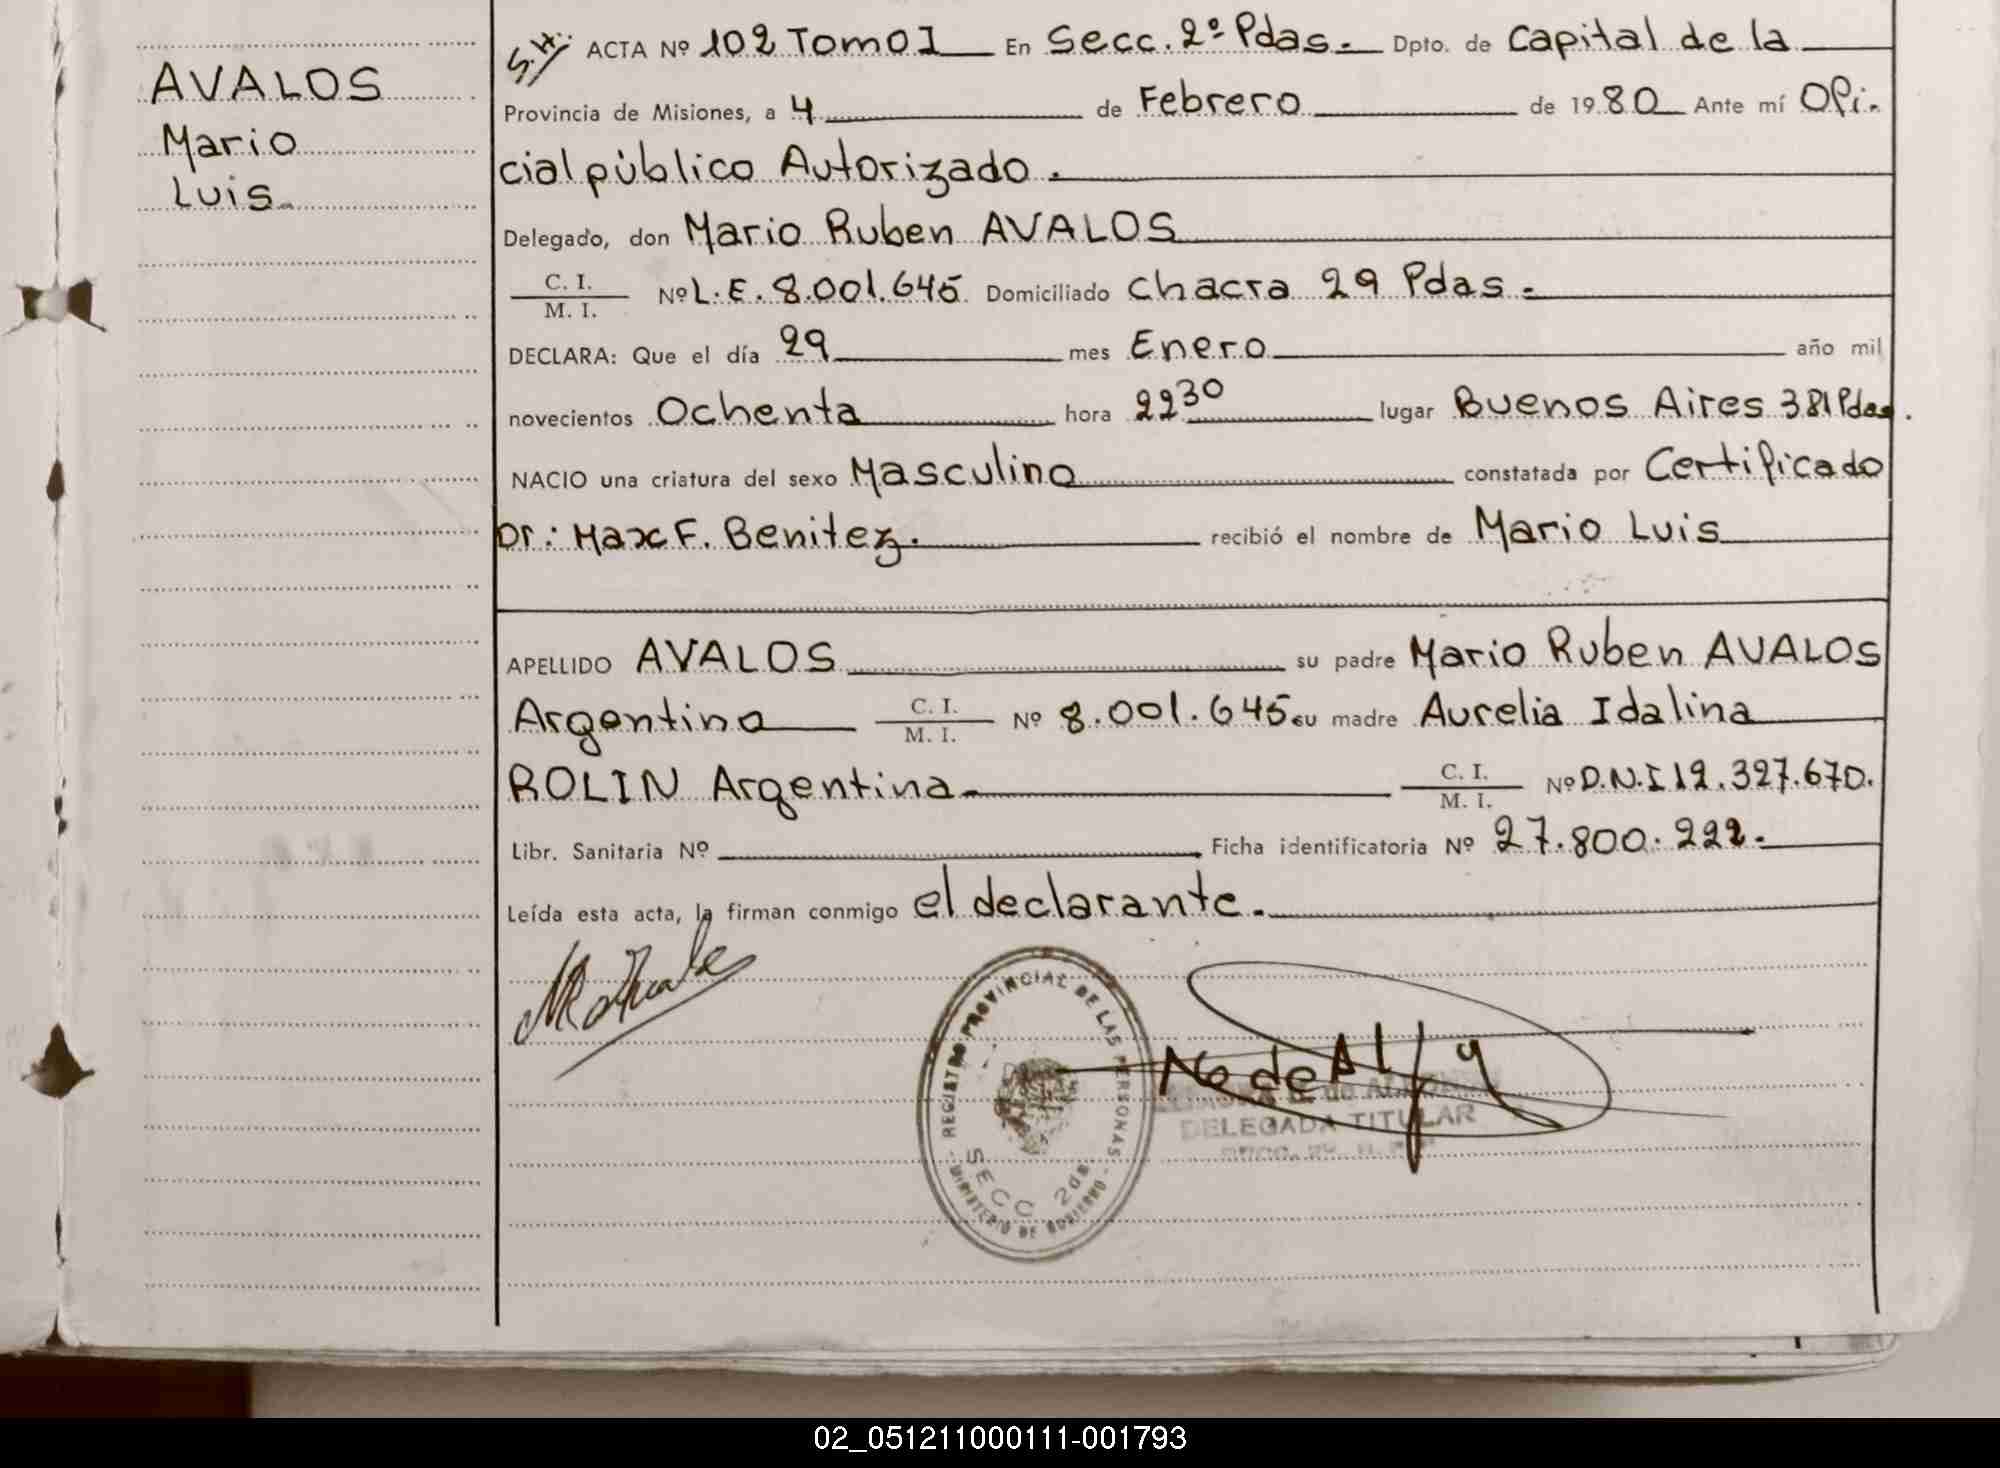 AVALOS
Mario
Luis
S.H. ACTA Nº 102 Tomo I En Secc. 2º Pdas. Dpto. de Capital de la
Provincia de Misiones, a 4 de Febrero de 1980 Ante mí Ofi-
cial público Autorizado.
Delegado, don Mario Ruben AVALOS
C. I.
M. I.
Nº L.E. 8.001.645 Domiciliado Chacra 29 Pdas.
DECLARA: Que el día 29 mes Enero año mil
novecientos Ochenta hora 22 30 lugar Buenos Aires 381 Pdas.
NACIO una criatura del sexo Masculino constatada por Certificado
Dr.: Max F. Benitez. recibió el nombre de Mario Luis
APELLIDO AVALOS su padre Mario Ruben AVALOS
Argentino C. I. M. I. Nº 8.001.645 su madre Aurelia Idalina
ROLIN Argentina C. I. M. I. Nº D.N.I 12.327.670.
Libr. Sanitaria Nº Ficha identificatoria Nº 27.800.222.
Leída esta acta, la firman conmigo el declarante.
REGISTRO PROVINCIAL DE LAS PERSONAS
SECC 2da
MINISTERIO DE GOBIERNO
DELEGADA TITULAR
02_051211000111-001793